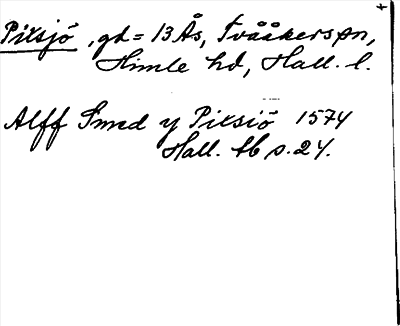 Pixsjö, gd = 13 Ås, Tvååkers sn,
Himle hd, Hall. l.
Alff Smed y Pixsiö 1574
Hall. tb s. 24.